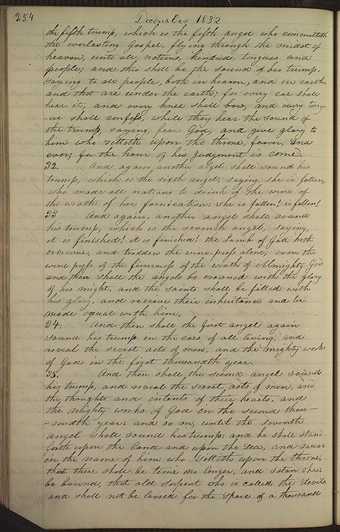 254
December 1832
the fifth trump, which is the fifth angel who committeth
the everlasting gospel, flying through the midst of
heaven, unto all nations, kindred, tongues and
people; and this shall be the sound of his trump,
saying to all people, both in heaven, and in earth,
and that are under the earth; for every ear shall
hear it, and every knee shall bow, and every ton-
gue shall confess, while they hear the sound of
the trump, saying, fear God, and give glory to
him who sitteth upon the throne, forever and
ever; for the hour of his judgment is come.
32. And again, another angel shall sound his
trump, which is the sixth angel, saying, she is fallen,
who made all nations to drink of the wine of
the wrath of her fornication: she is fallen! is fallen!
33. And again, another angel shall sound
his trump, which is the seventh angel, saying,
it is finished! it is finished! the Lamb of God hath
overcome, and trodden the wine-press alone; even the
wine press of the fierceness of the wrath of Almighty God
and then shall the angels be crowned with the glory
of his might, and the saints shall be filled with
his glory, and receive their inheritance and be
made equal with him.
34. And then shall the first angel again
sound his trump in the ears of all living, and
reveal the secret acts of men, and the mighty works
of God in the first thousandth year.
35. And then shall the second angel sound
his trump, and reveal the secret acts of men, and
the thoughts and intents of their hearts, and
the mighty works of God in the second thou-
sandth year: and so on, until the seventh
angel shall sound his trump: and he shall stand
forth upon the land and upon the sea, and swear
in the name of him who sitteth upon the throne,
that there shall be time no longer, and satan shall
be bound, that old serpent who is called the devil,
and shall not be loosed for the space of a thousand